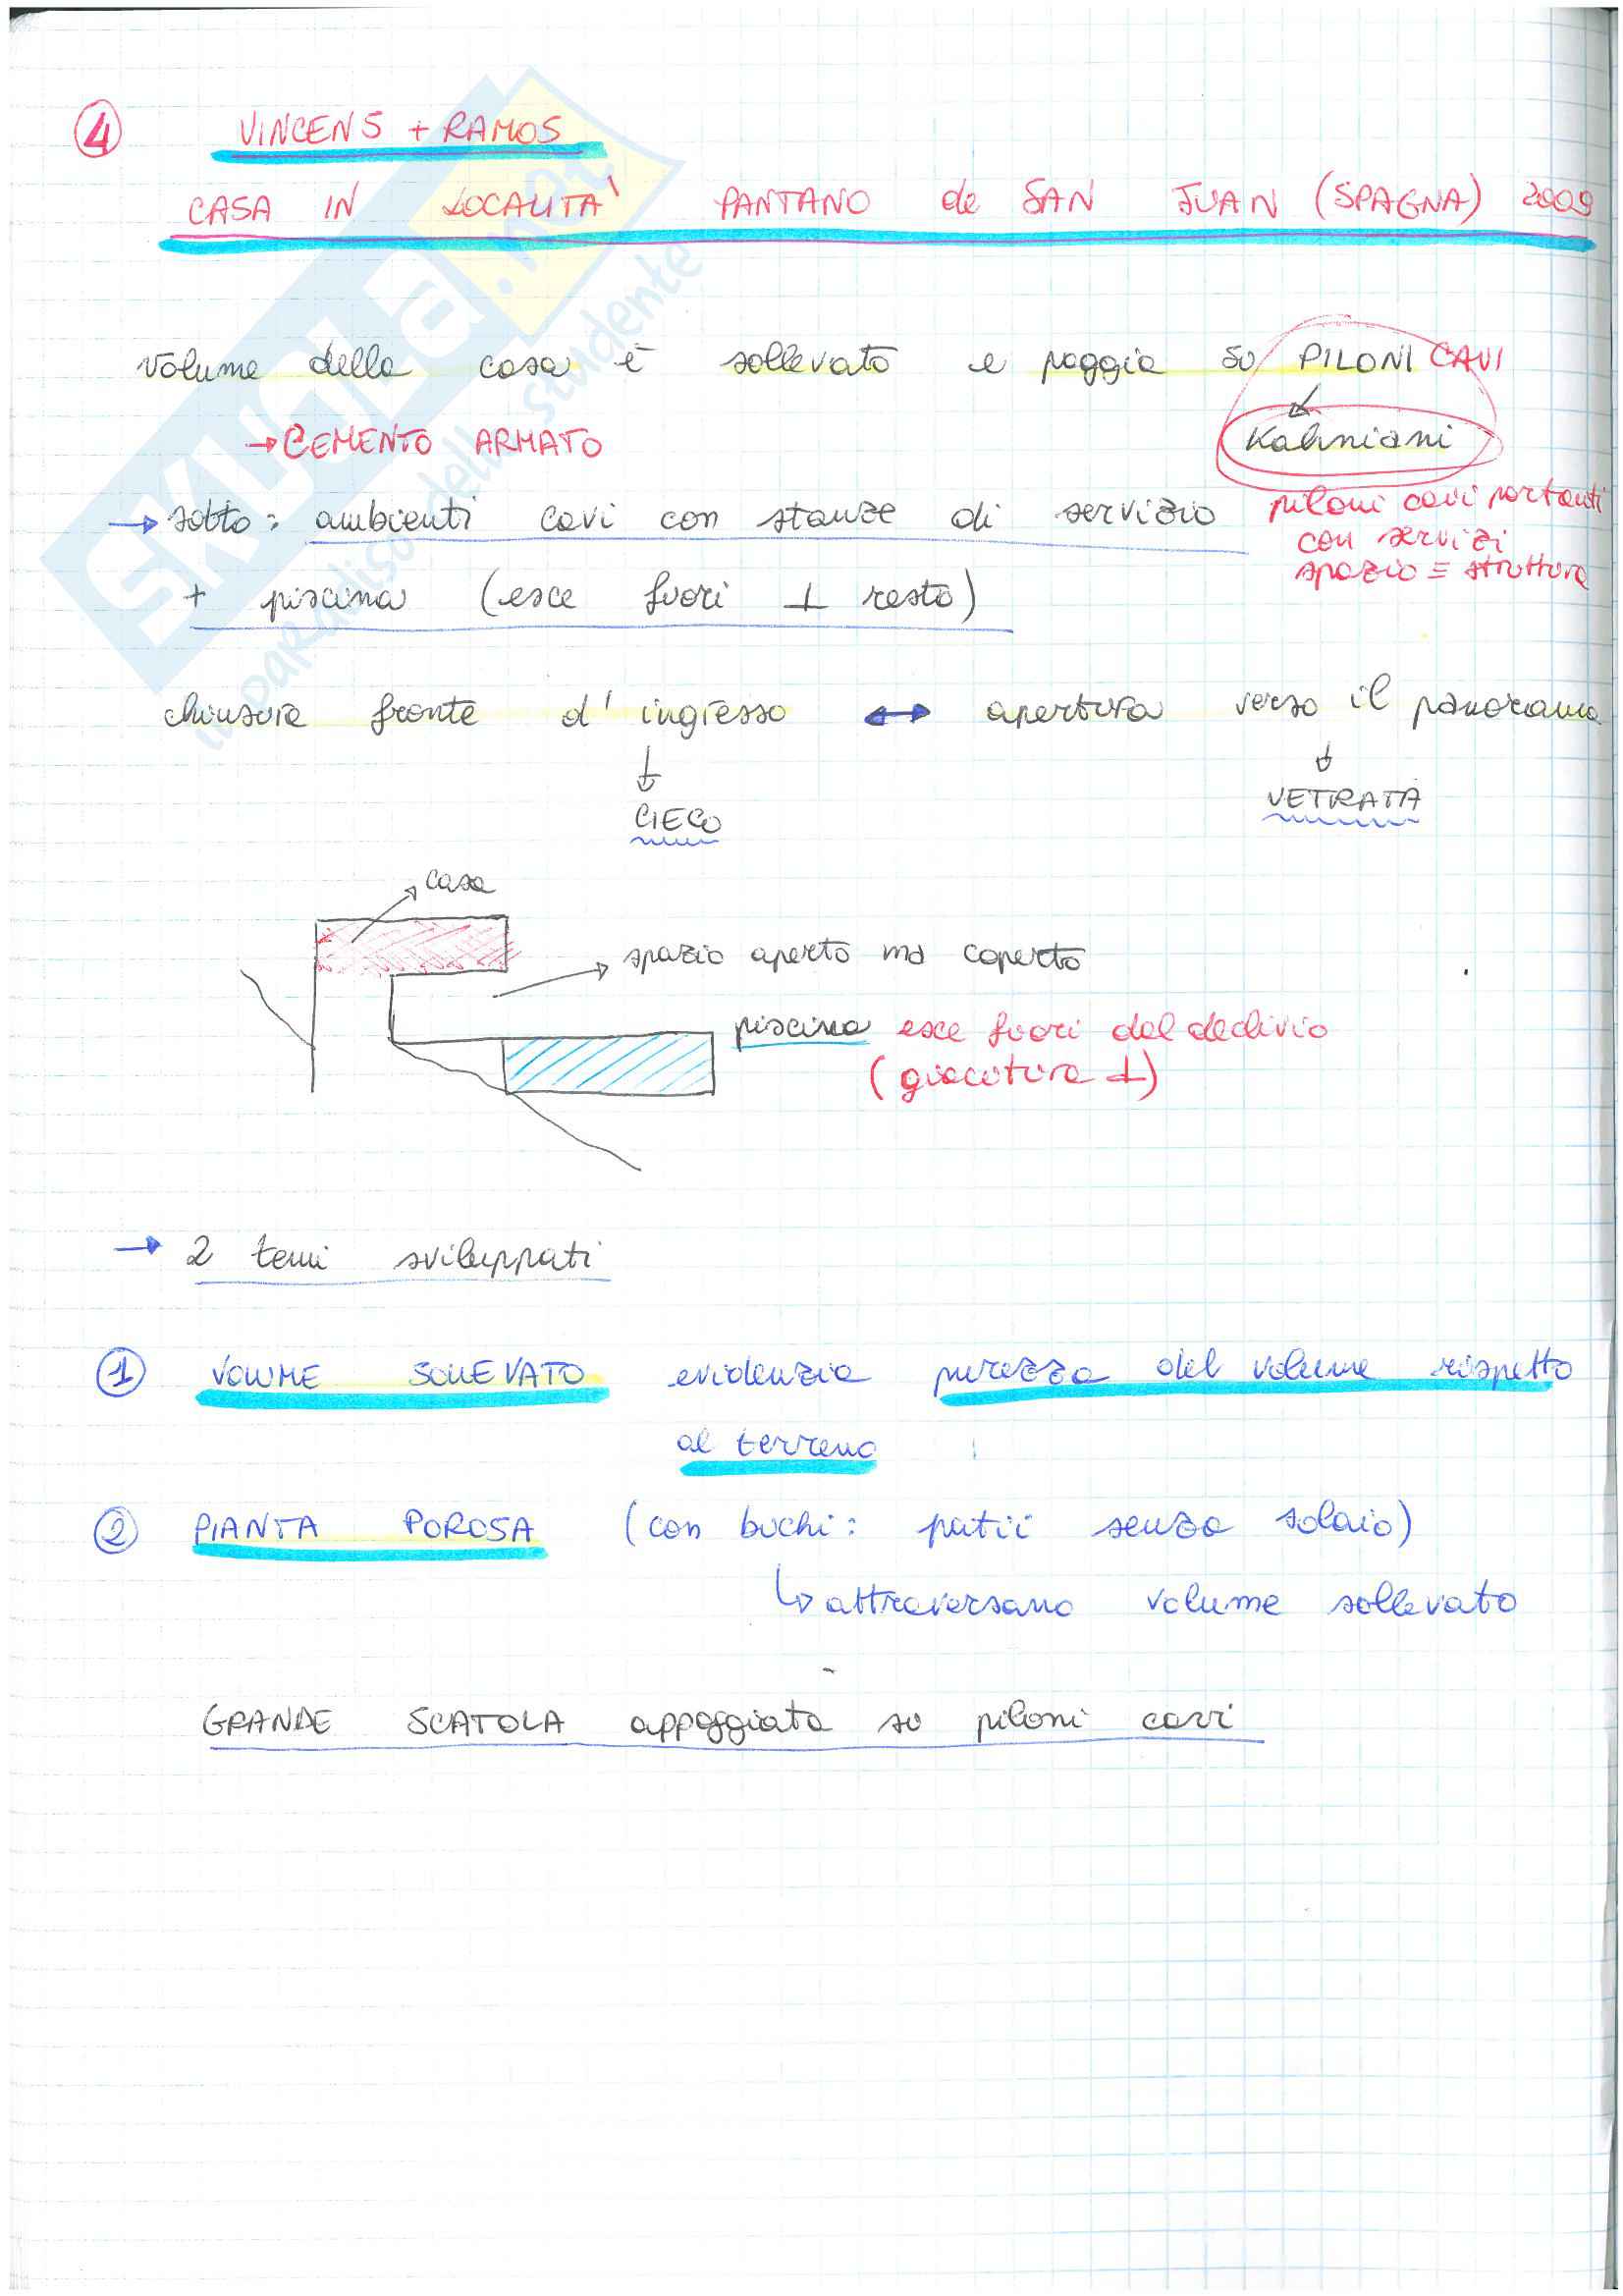 4 VINCENS + RAMOS
CASA IN LOCALITA' PANTANO de SAN JUAN (SPAGNA) 2009
volume della casa è sollevato e poggia su PILONI CAVI
→ CEMENTO ARMATO
Kahniani
→ sotto: ambienti cavi con stanze di servizio
piloni cavi portanti
con servizi
spazio ≡ struttura
+ piscina (esce fuori ⊥ resto)
chiusura fronte d'ingresso ↔ apertura verso il panorama
CIECO
VETRATA
casa
spazio aperto ma coperto
piscina esce fuori dal declivio
(giacitura ⊥)
→ 2 temi sviluppati
1 VOLUME SOLLEVATO evidenzia purezza del volume rispetto
al terreno
2 PIANTA POROSA (con buchi: patii senza solaio)
↳ attraversano volume sollevato
GRANDE SCATOLA appoggiata su piloni cavi
SKUOLA.net
il paradiso dello studente